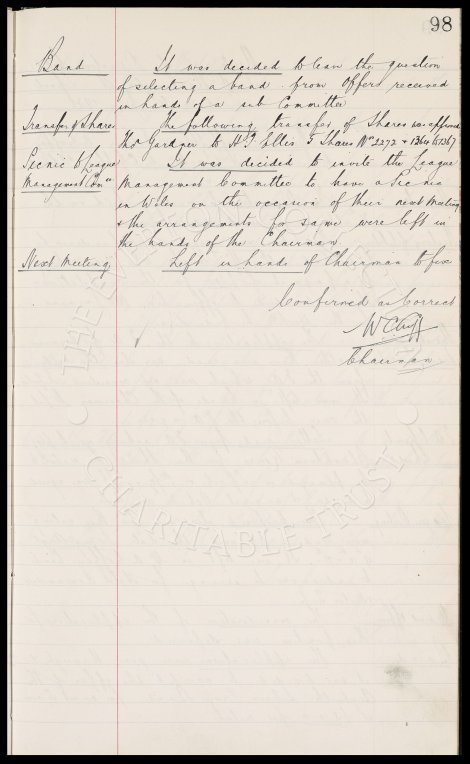 98
Band It was decided to leave the question
of selecting a band from Offers received
in hands of a sub Committee
Transfer of Shares The following transfer of Shares was approved
Thos Gardner to H J Ellis 5 Shares Nos 2272 & 1364 to 1367
Picnic to League It was decided to invite the League
Management Comee Management Committee to have a Picnic
in Wales on the occasion of their next Meeting
& the arrangements for same were left in
the hands of the Chairman
Next Meeting Left in hands of Chairman to fix
Confirmed as Correct
W C Cuff
Chairman
THE EVERTON
CHARITABLE TRUST